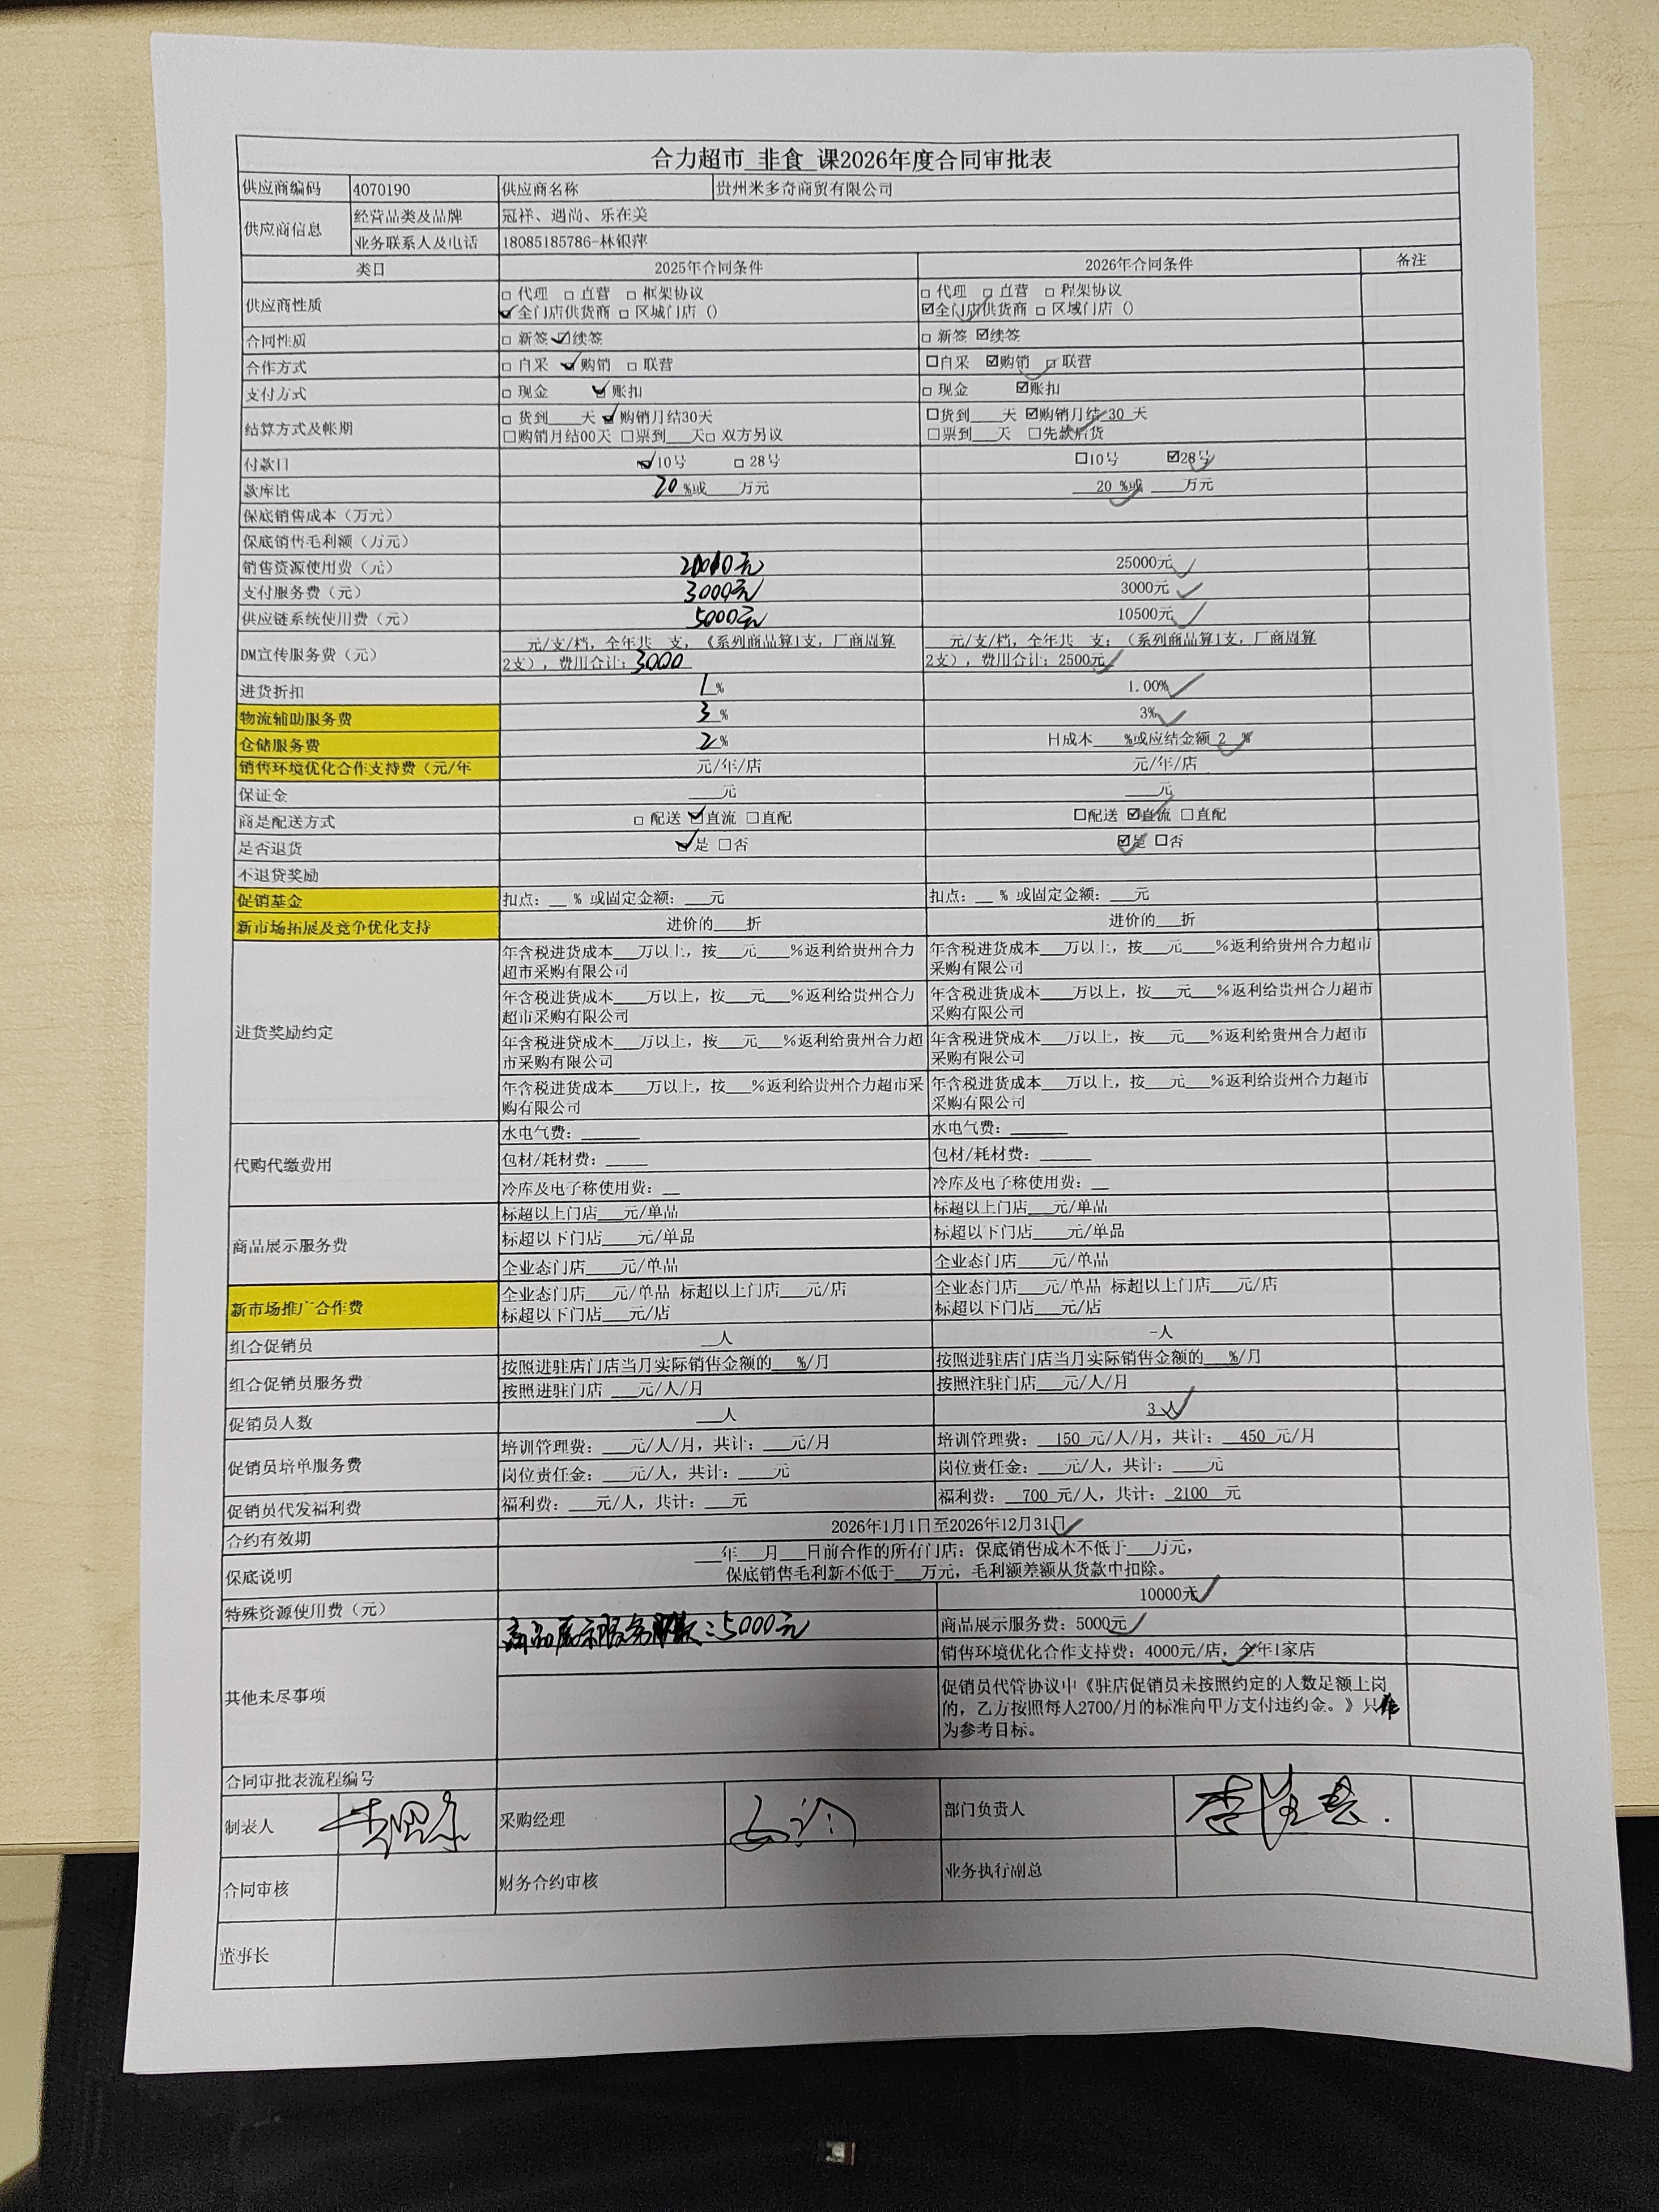 合力超市 非食 课2026年度合同审批表
供应商编码 4070190 供应商名称 贵州米多奇商贸有限公司
供应商信息 经营品类及品牌 冠祥、遇尚、乐在美
业务联系人及电话 18085185786-林银萍
类目 2025年合同条件 2026年合同条件 备注
供应商性质 □ 代理 □ 直营 □ 框架协议 □ 代理 □ 直营 □ 程架协议
☑全门店供货商 □ 区城门店 () ☑全门店供货商 □ 区域门店 ()
合同性质 □ 新签 ☑续签 □ 新签 ☑续签
合作方式 □ 自采 ☑购销 □ 联营 □自采 ☑购销 □ 联营
支付方式 □ 现金 ☑账扣 □ 现金 ☑账扣
结算方式及帐期 □ 货到___天 ☑购销月结30天 □货到___天 ☑购销月结 30 天
□购销月结00天 □票到___天□ 双方另议 □票到___天 □先款后货
付款日 ☑10号 □ 28号 □10号 ☑28号
款库比 20 %或___万元 20 %或___万元
保底销售成本（万元）
保底销售毛利额（万元）
销售资源使用费（元） 元 25000元
支付服务费（元） 3000元 3000元
供应链系统使用费（元） 5000元 10500元
DM宣传服务费（元） 元/支/档，全年共__支，《系列商品算1支，厂商周算 元/支/档，全年共__支；（系列商品算1支，厂商周算
2支），费用合计：3000 2支），费用合计：2500元
进货折扣 1% 1.00%
物流辅助服务费 3% 3%
仓储服务费 2% H成本___%或应结金额 2 %
销售环境优化合作支持费（元/年 元/年/店 元/年/店
保证金 ___元 ___元
商是配送方式 □ 配送 ☑直流 □直配 □配送 ☑直流 □直配
是否退货 ☑是 □否 ☑是 □否
不退贷奖励
促销基金 扣点：__ % 或固定金额：___元 扣点：__ % 或固定金额：___元
新市场拓展及竞争优化支持 进价的___折 进价的___折
进货奖励约定 年含税进货成本___万以上，按___元____%返利给贵州合力 年含税进货成本___万以上，按___元____%返利给贵州合力超市
超市采购有限公司 采购有限公司
年含税进货成本____万以上，按___元___%返利给贵州合力 年含税进货成本____万以上，按___元___%返利给贵州合力超市
超市采购有限公司 采购有限公司
年含税进贷成本___万以上，按___元___%返利给贵州合力超 年含税进贷成本___万以上，按___元___%返利给贵州合力超市
市采购有限公司 采购有限公司
年含税进货成本___万以上，按___%返利给贵州合力超市采 年含税进货成本___万以上，按___元___%返利给贵州合力超市
购有限公司 采购有限公司
代购代缴费用 水电气费：______ 水电气费：______
包材/耗材费：_____ 包材/耗材费：_____
冷库及电子称使用费：__ 冷库及电子称使用费：__
商品展示服务费 标超以上门店___元/单品 标超以上门店___元/单品
标超以下门店____元/单品 标超以下门店____元/单品
企业态门店____元/单品 企业态门店____元/单品
新市场推广合作费 企业态门店___元/单品 标超以上门店___元/店 企业态门店___元/单品 标超以上门店___元/店
标超以下门店___元/店 标超以下门店___元/店
组合促销员 __人 -人
组合促销员服务费 按照进驻店门店当月实际销售金额的___%/月 按照进驻店门店当月实际销售金额的___%/月
按照进驻门店 ___元/人/月 按照注驻门店___元/人/月
促销员人数 ___人 3人
促销员培单服务费 培训管理费：___元/人/月，共计：___元/月 培训管理费： 150 元/人/月，共计： 450 元/月
岗位责任金：___元/人，共计：____元 岗位责任金：___元/人，共计：____元
促销员代发福利费 福利费：___元/人，共计：___元 福利费： 700 元/人，共计： 2100 元
合约有效期 2026年1月1日至2026年12月31日
保底说明 ___年___月___日前合作的所有门店：保底销售成本不低于___万元，
保底销售毛利新不低于___万元，毛利额差额从货款中扣除。
特殊资源使用费（元） 10000元
其他未尽事项 商品展示服务：5000元 商品展示服务费：5000元
销售环境优化合作支持费：4000元/店，全年1家店
促销员代管协议中《驻店促销员未按照约定的人数足额上岗
的，乙方按照每人2700/月的标准向甲方支付违约金。》只作
为参考目标。
合同审批表流程编号
制表人 采购经理 部门负责人
合同审核 财务合约审核 业务执行副总
董事长